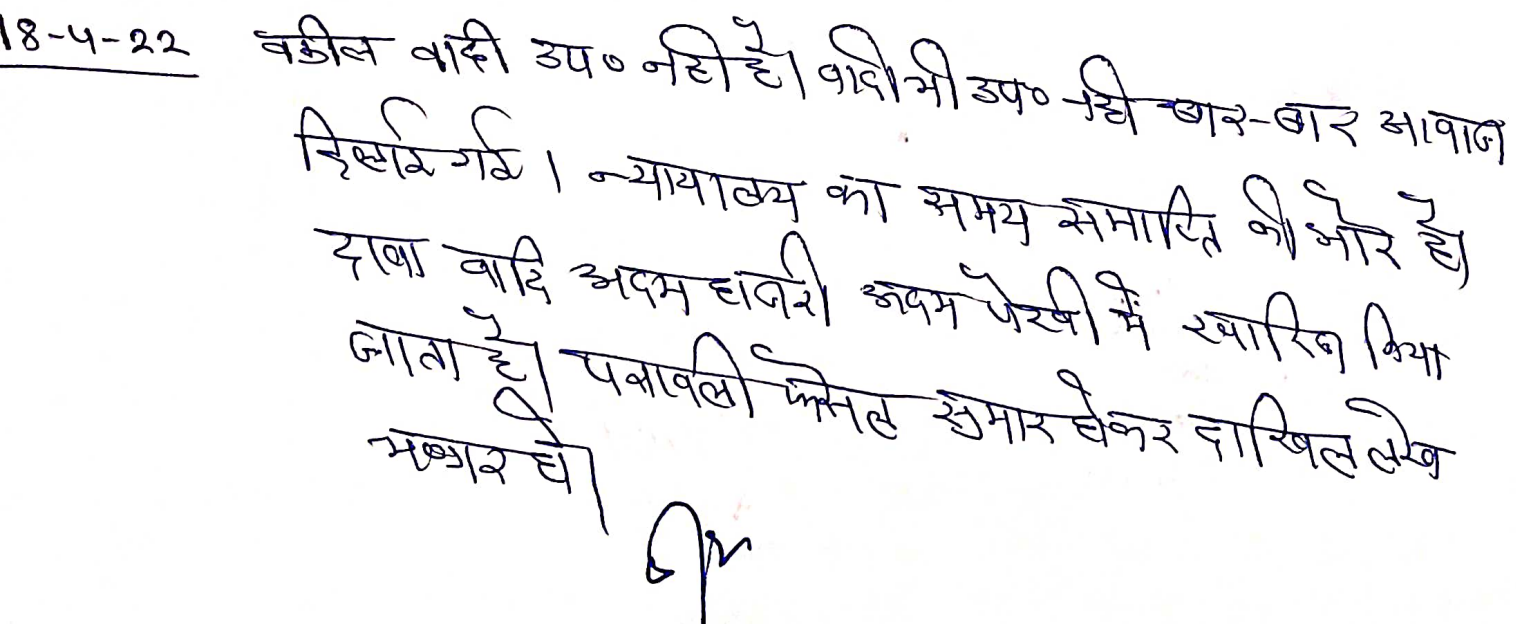 18-4-22 वकील वादी उप० नही है। वादी भी उप० नही बार-बार आवाज
दिलाई गई। न्यायालय का समय समाप्ति की ओर है।
दावा वादि अदम हाजरी अदम पेरवी में खारिज किया
जाता है। पत्रावली फैसल सुमार होकर दाखिल लेख
भण्डार हो।